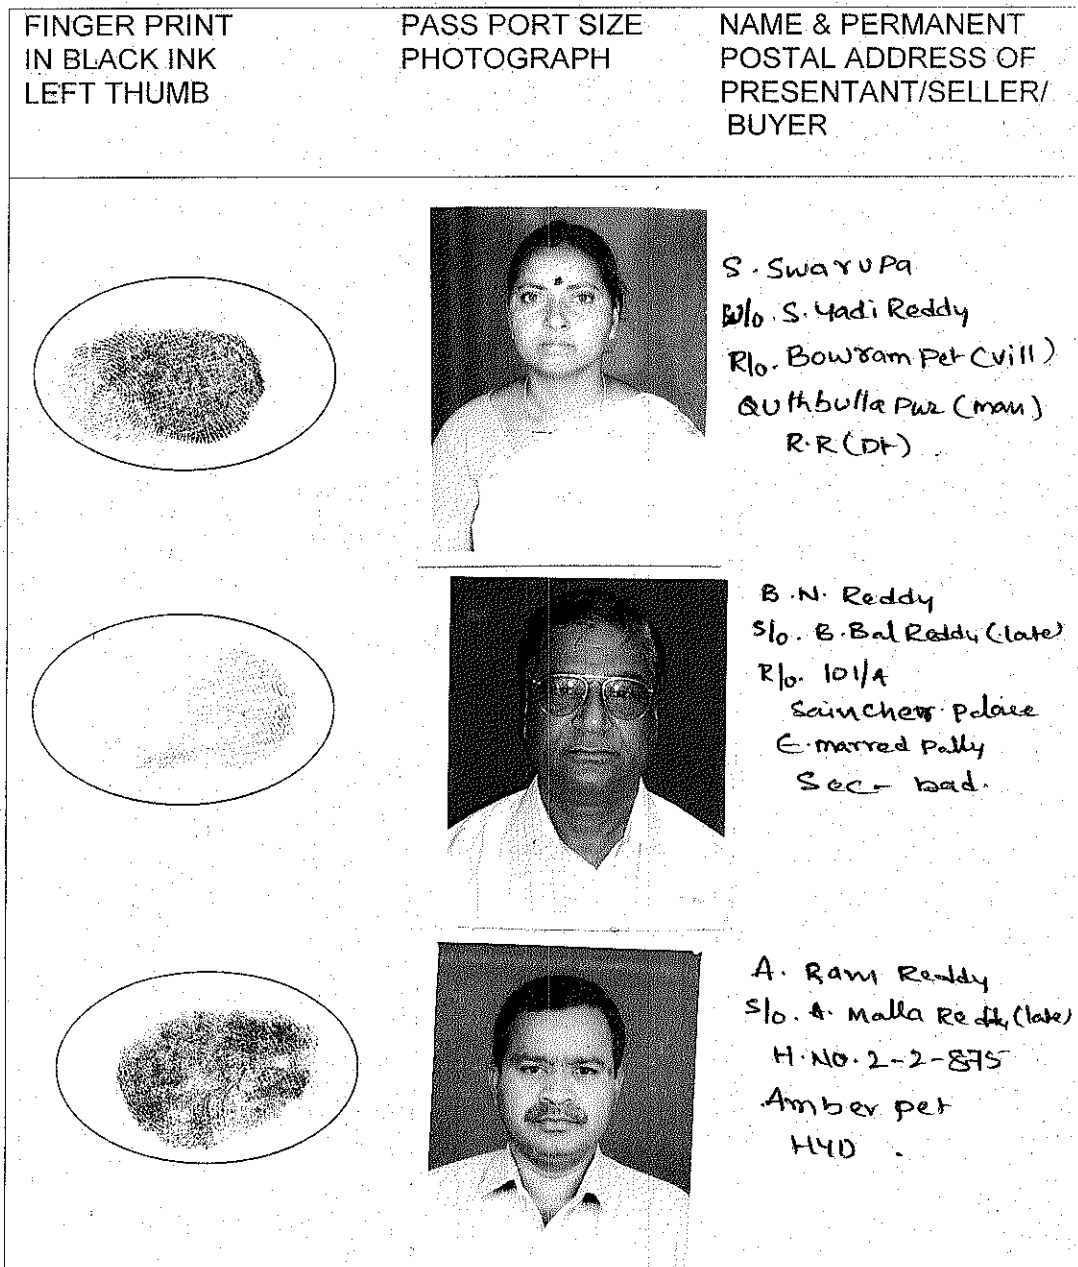 FINGER PRINT
IN BLACK INK
LEFT THUMB
PASS PORT SIZE
PHOTOGRAPH
NAME & PERMANENT
POSTAL ADDRESS OF
PRESENTANT/SELLER/
BUYER
S. Swarupa
W/o. S. Yadi Reddy
R/o. Bowrampet (vill)
Quthbullapur (man)
R.R (Dt)
B.N. Reddy
S/o. B. Bal Reddy (late)
R/o. 101/A
E. marred pally
Sec-bad.
A. Ram Reddy
S/o. A. Malla Reddy (late)
H.NO. 2-2-875
Amber pet
HYD.